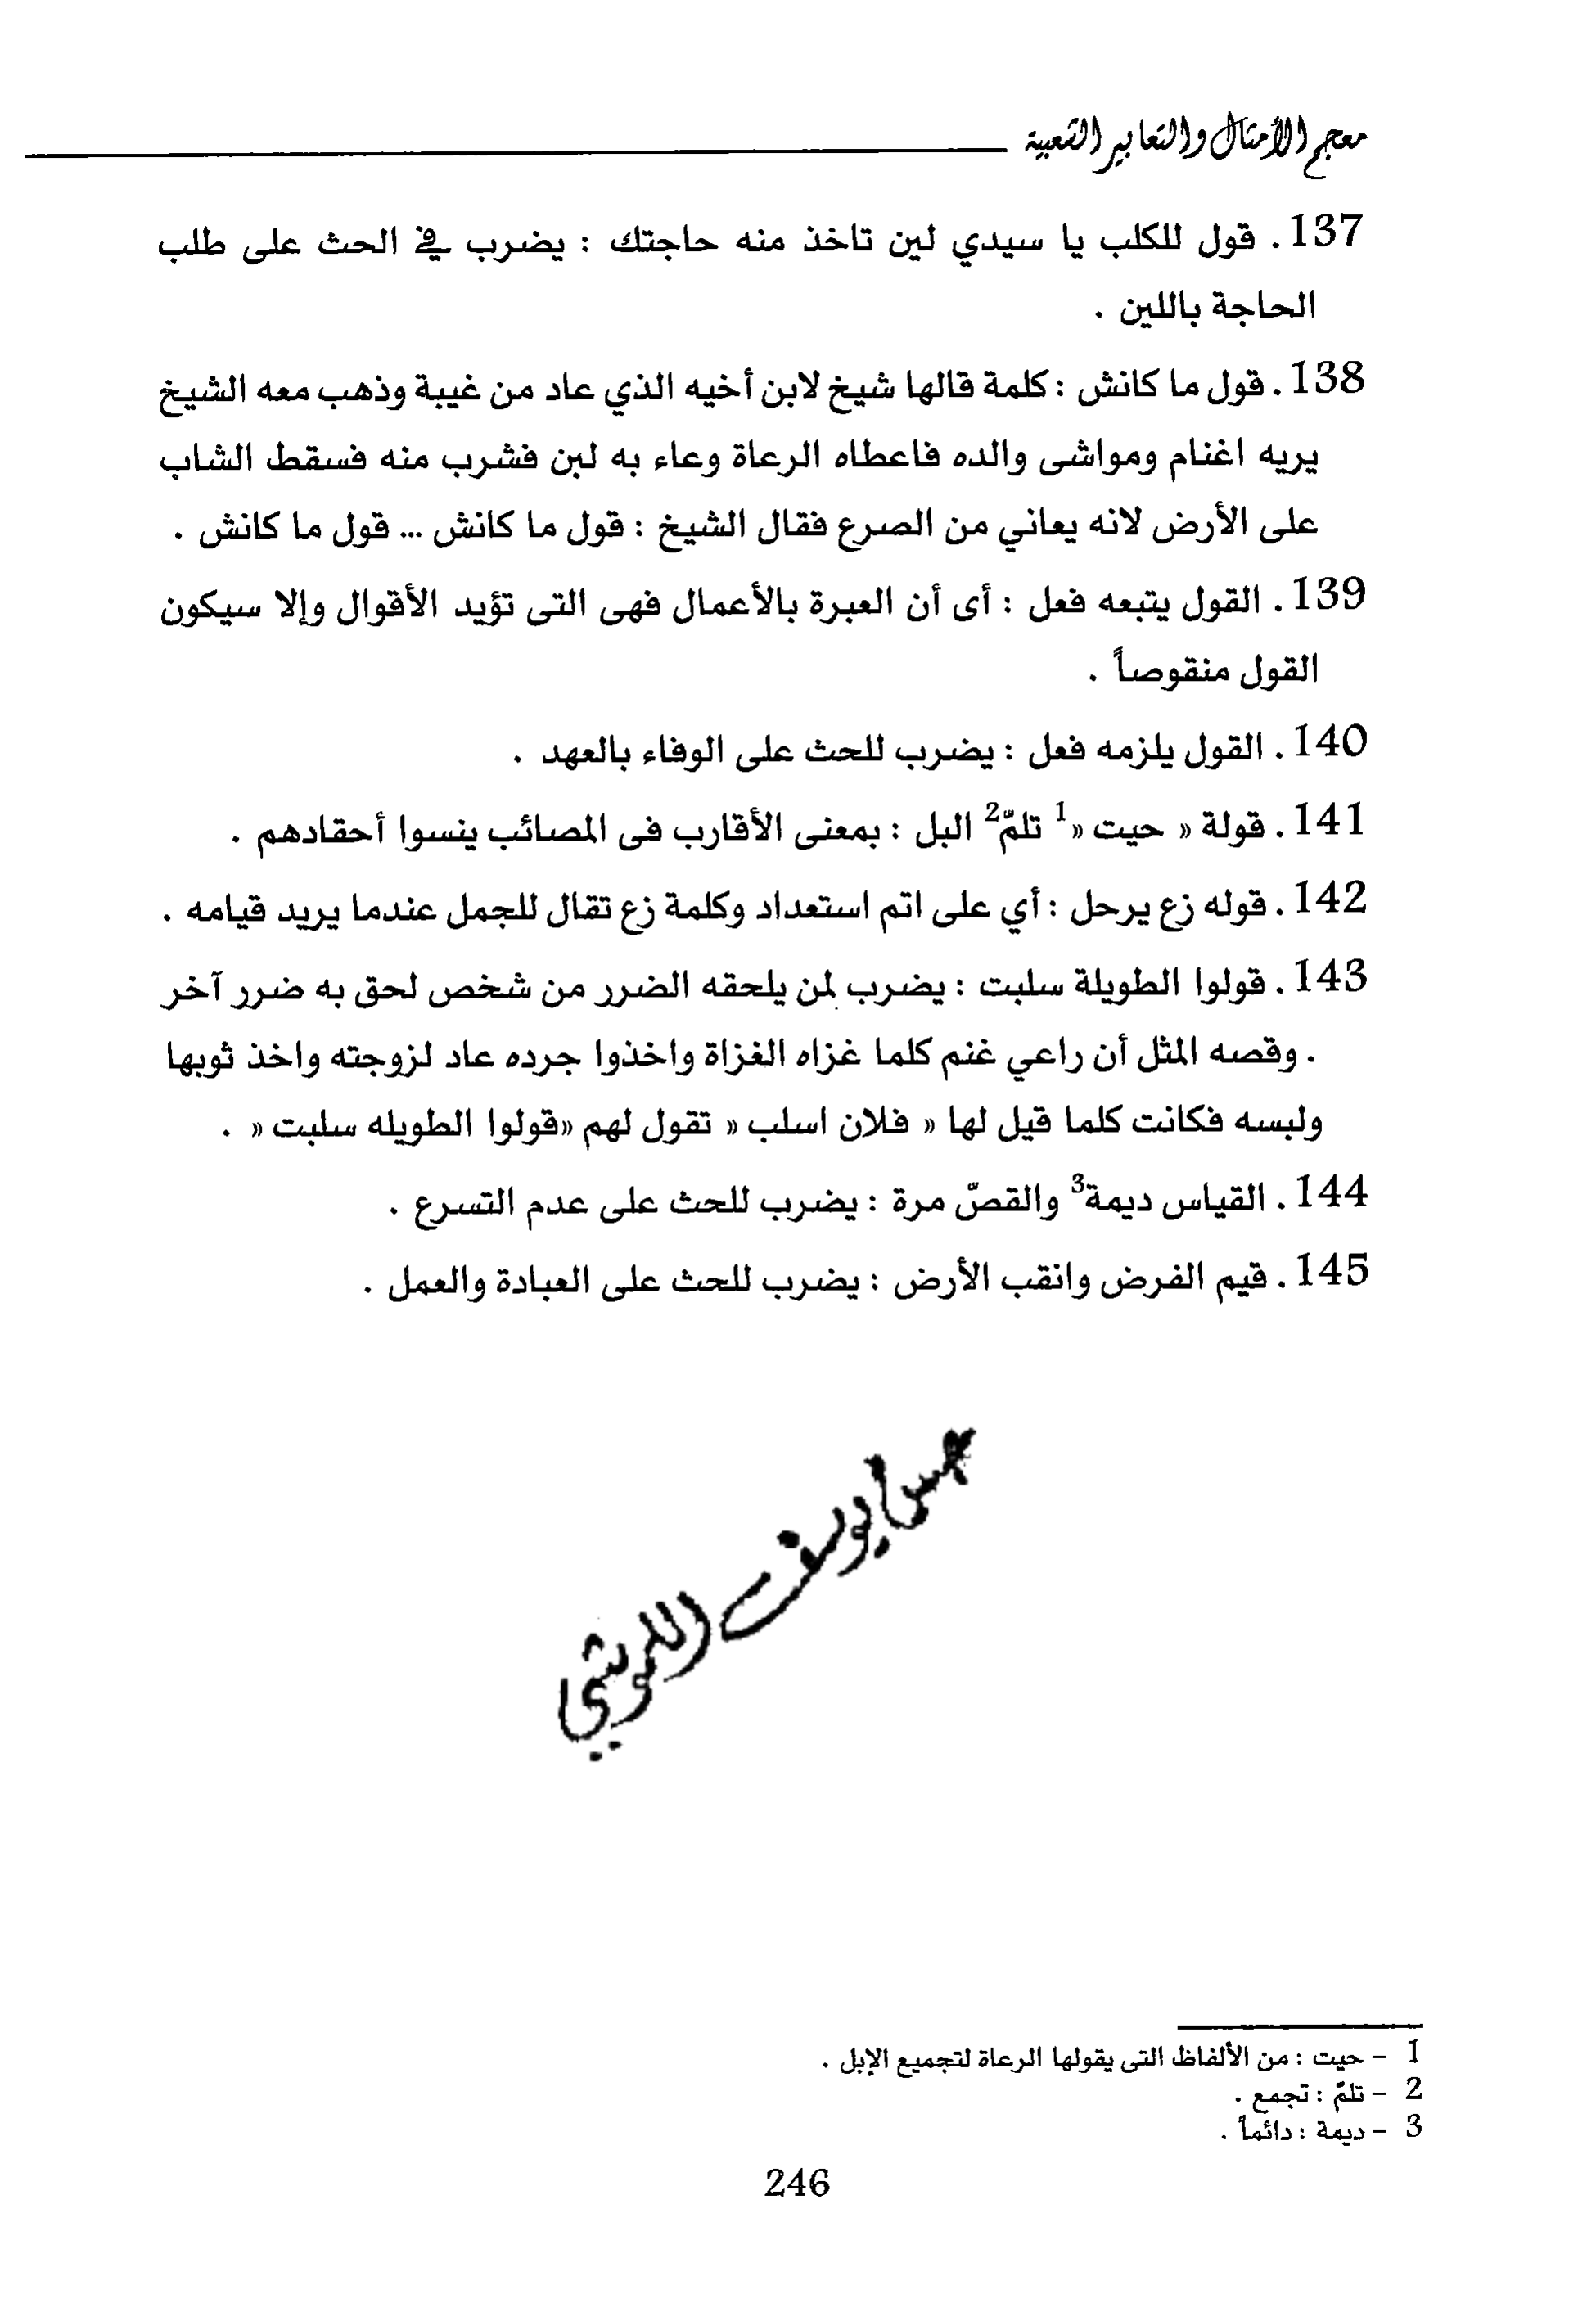 معجم الأمثال والتعابير الشعبية
137. قول للكلب يا سيدي لين تاخذ منه حاجتك : يضرب في الحث على طلب
الحاجة باللين .
138. قول ما كانش : كلمة قالها شيخ لابن أخيه الذي عاد من غيبة وذهب معه الشيخ
يريه اغنام ومواشى والده فاعطاه الرعاة وعاء به لبن فشرب منه فسقط الشاب
على الأرض لانه يعاني من الصرع فقال الشيخ : قول ما كانش ... قول ما كانش .
139. القول يتبعه فعل : أى أن العبرة بالأعمال فهى التى تؤيد الأقوال وإلا سيكون
القول منقوصاً .
140. القول يلزمه فعل : يضرب للحث على الوفاء بالعهد .
141. قولة « حيت «1 تلمّ2 البل : بمعنى الأقارب فى المصائب ينسوا أحقادهم .
142. قوله زع يرحل : أي على اتم استعداد وكلمة زع تقال للجمل عندما يريد قيامه .
143. قولوا الطويلة سلبت : يضرب لمن يلحقه الضرر من شخص لحق به ضرر آخر
. وقصه المثل أن راعي غنم كلما غزاه الغزاة واخذوا جرده عاد لزوجته واخذ ثوبها
ولبسه فكانت كلما قيل لها « فلان اسلب « تقول لهم «قولوا الطويله سلبت « .
144. القياس ديمة3 والقصّ مرة : يضرب للحث على عدم التسرع .
145. قيم الفرض وانقب الأرض : يضرب للحث على العبادة والعمل .
يوسف
1 - حيت : من الألفاظ التى يقولها الرعاة لتجميع الإبل .
2 - تلمّ : تجمع .
3 - ديمة : دائماً .
246